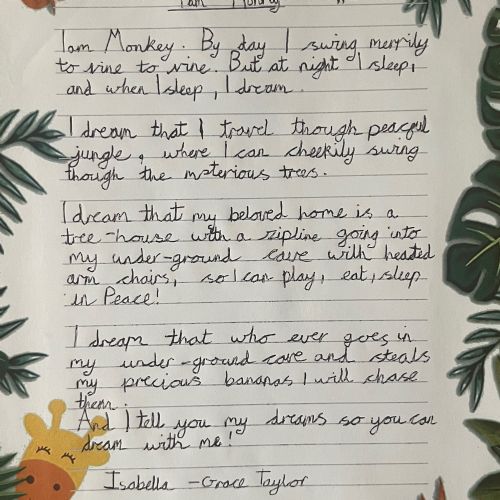 I am Monkey
I am Monkey. By day I swing merrily
to vine to vine. But at night I sleep,
and when I sleep, I dream.
I dream that I travel though peaceful
jungle, where I can cheekily swing
though the mysterious trees.
I dream that my beloved home is a
tree-house with a zipline going into
my under-ground cave with heated
arm chairs, so I can play, eat, sleep
in Peace!
I dream that who ever goes in
my under-ground cave and steals
my precious bananas I will chase
them.
And I tell you my dreams so you can
dream with me!
Isabella-Grace Taylor